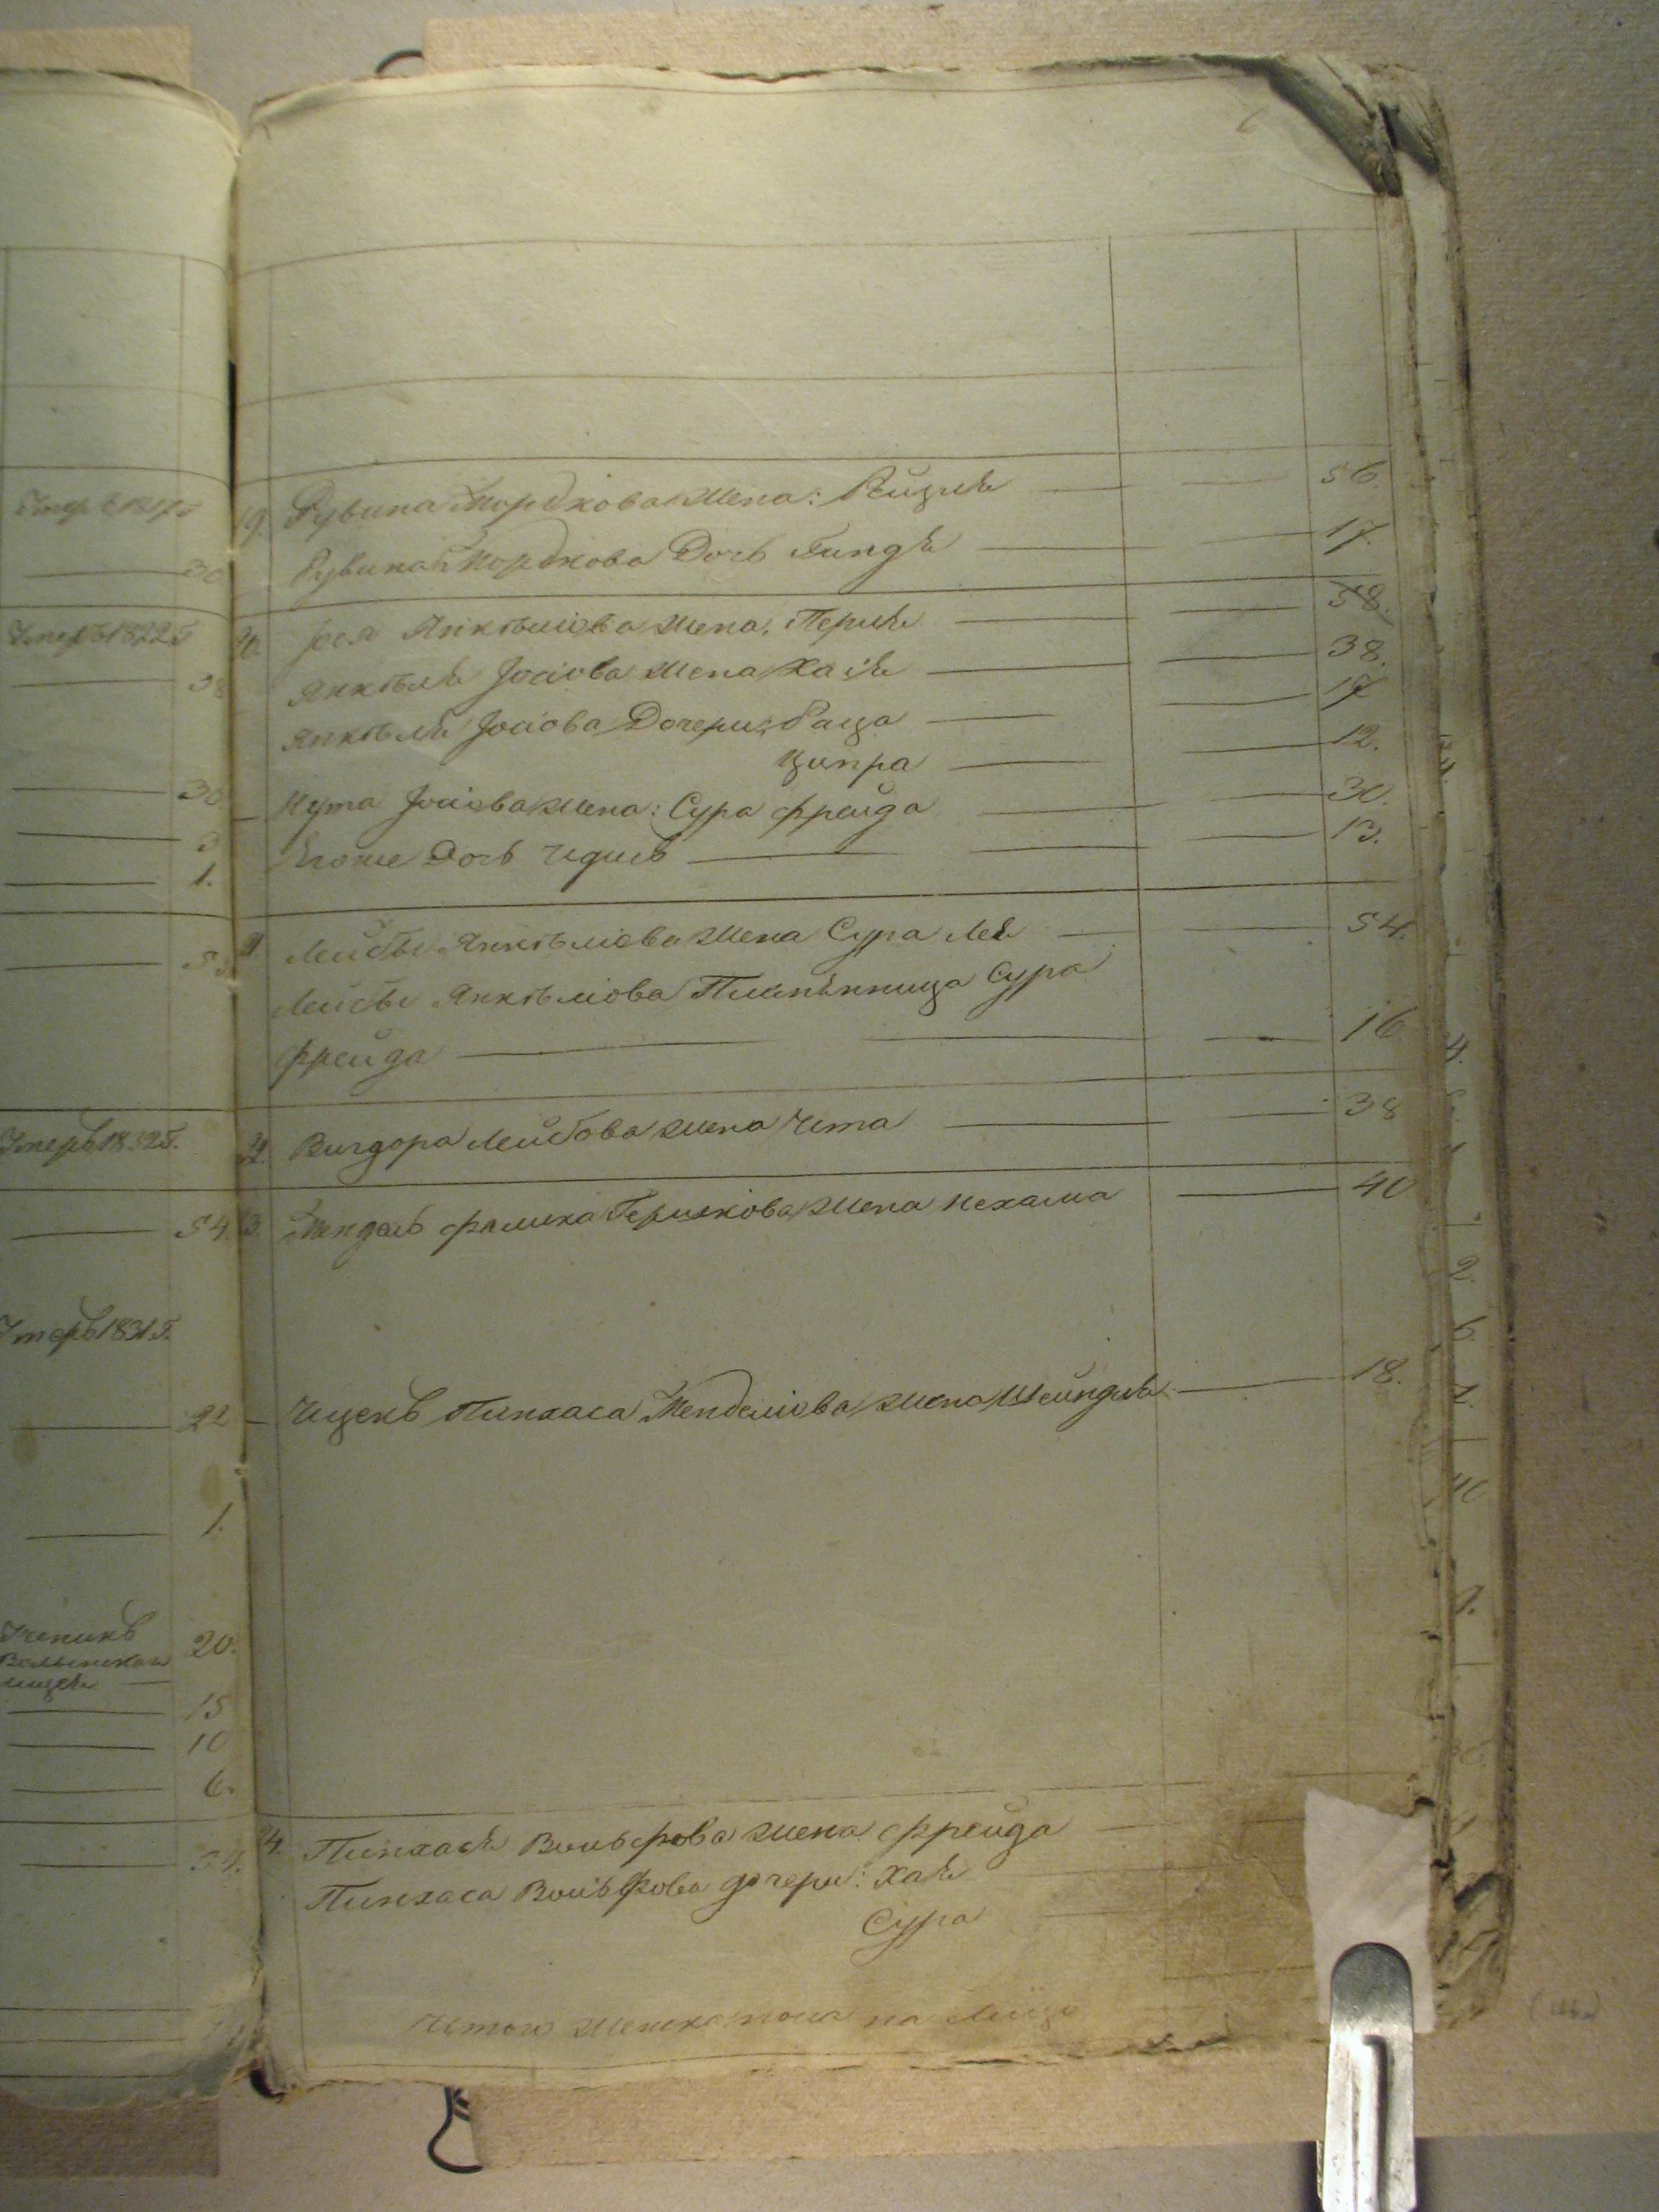 Умеръ 1817г
30
Умеръ 1822г
38
30
3
1.
Умеръ 1832г.
54
Умеръ 1831г.
22
1.
Ученикъ
20.
15
10
6.
34.
19. Рувина Мордкова жена: Рейзля — 56
Рувина Мордкова Дочь Гиндя — 17.
20. Янкѣліова жена, Перля — 58.
Янкѣля Іосіова жена Хася — 38.
Янкѣля Іосіова Дочери: Баща — 17
Ципра — 12.
Нута Іосіова жена: Сура Фрейда — 30.
Егоже Дочь Идись — 13.
Лейбы Янкѣліова жена Сура Лея — 54.
Лейбы Янкѣліова Племѣнница Сура
Фрейда — 16
Вигдора Лейбова жена Ита — 38
Мендель Фалика Гершкова жена Нехама — 40
Ицекъ Пинхаса Менделіова жена Шейндля — 18.
24. Пинхася Вольфова жена Фрейда —
Пинхаса Вольфова дочери: Хая
Сура
Итого женска пола на лицо